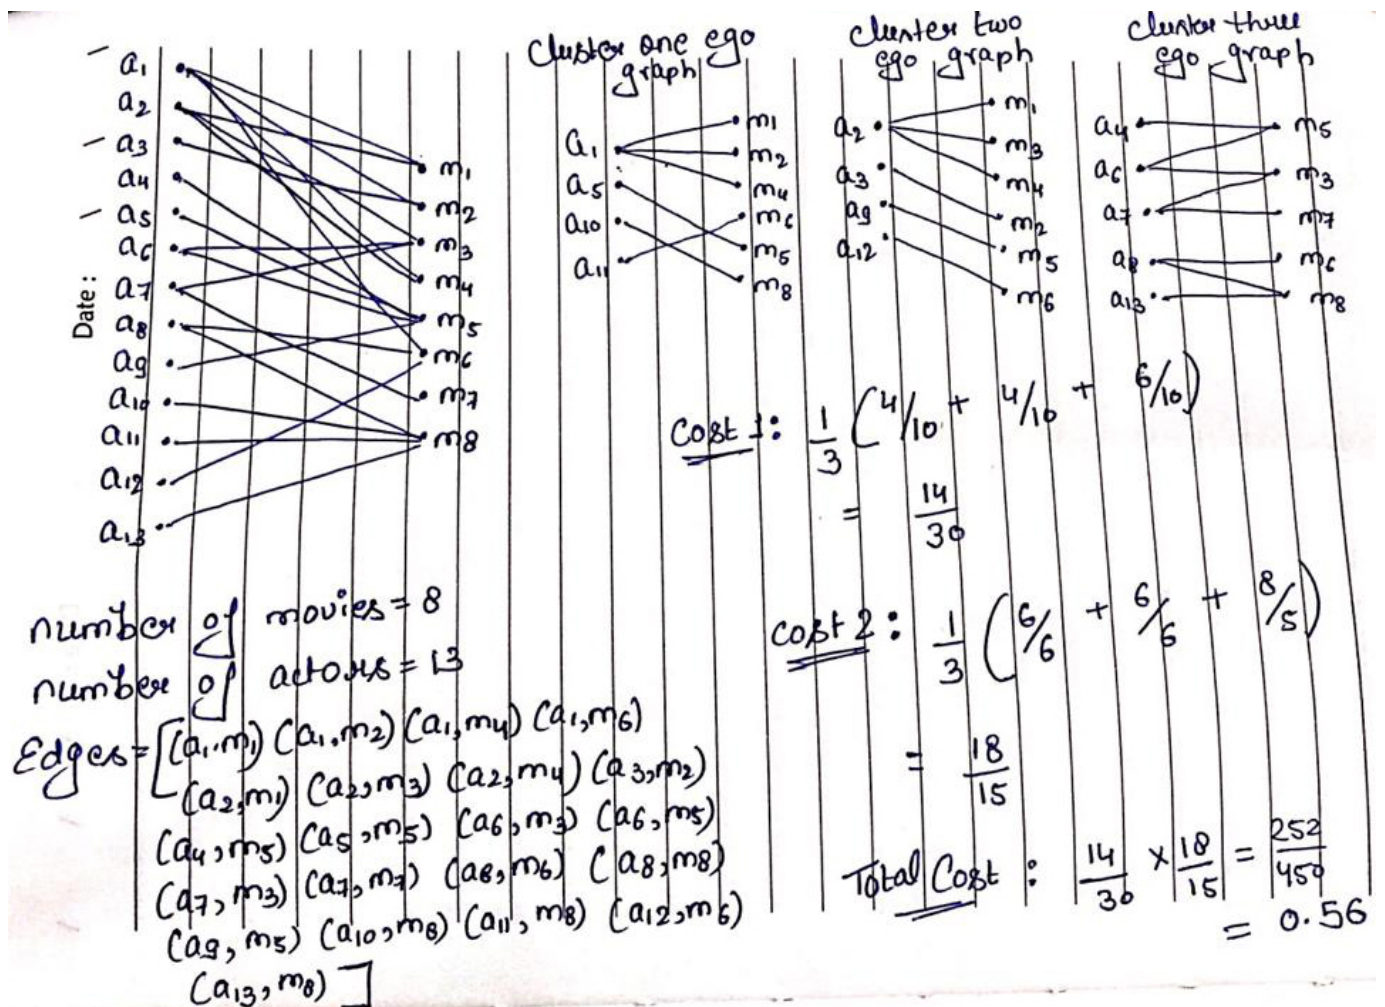 a1
a2
a3
a4
a5
a6
a7
a8
a9
a10
a11
a12
a13
Date :
m1
m2
m3
m4
m5
m6
m7
m8
cluster one ego
graph
a1
a5
a10
a11
m1
m2
m4
m6
m5
m8
cluster two
ego graph
a2
a3
a9
a12
m1
m3
m4
m2
m5
m6
cluster three
ego graph
a4
a6
a7
a8
a13
m5
m3
m7
m6
m8
Cost 1: 1/3 (4/10 + 4/10 + 6/10)
= 14/30
cost 2: 1/3 (6/6 + 6/6 + 8/5)
= 18/15
Total Cost : 14/30 × 18/15 = 252/450
= 0.56
number of movies = 8
number of actors = 13
Edges = [(a1,m1) (a1,m2) (a1,m4) (a1,m6)
(a2,m1) (a2,m3) (a2,m4) (a3,m2)
(a4,m5) (a5,m5) (a6,m3) (a6,m5)
(a7,m3) (a7,m7) (a8,m6) (a8,m8)
(a9,m5) (a10,m8) (a11,m8) (a12,m6)
(a13,m8)]